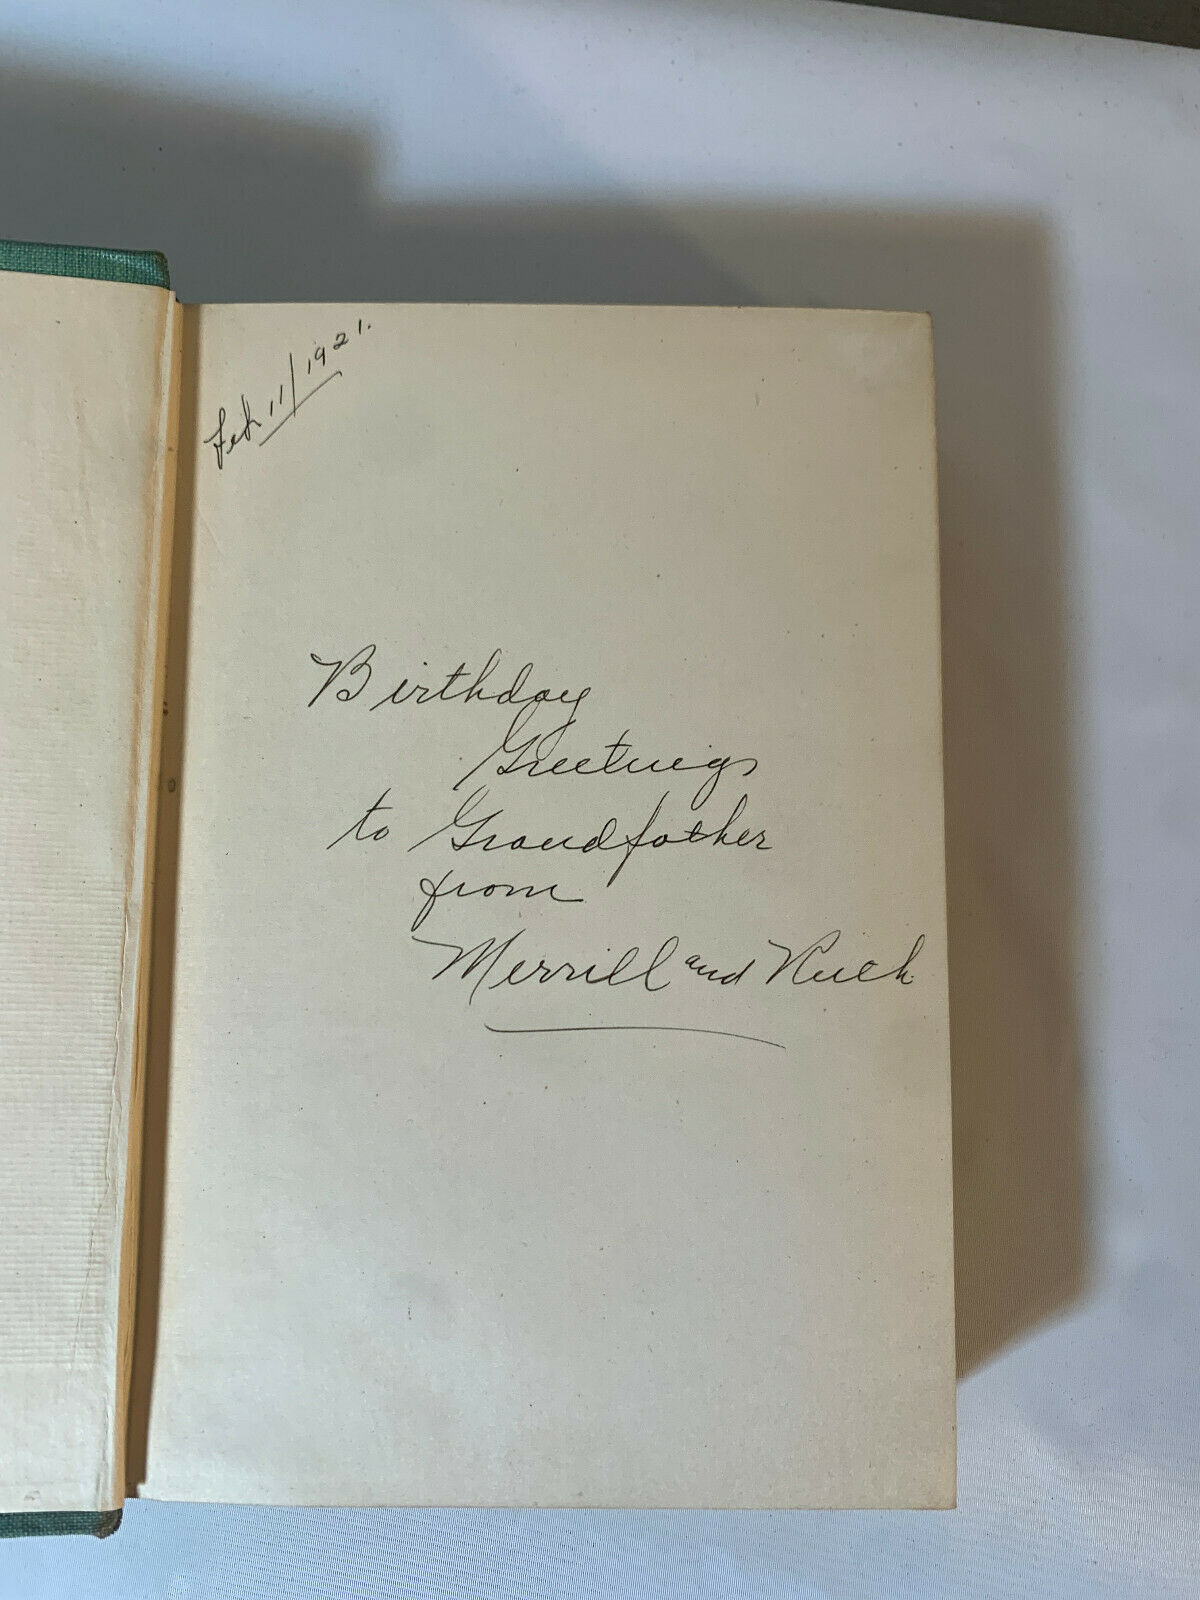 Feb 11/1921.
Birthday
Greetings
to Grandfather
from
Merrill and Ruth